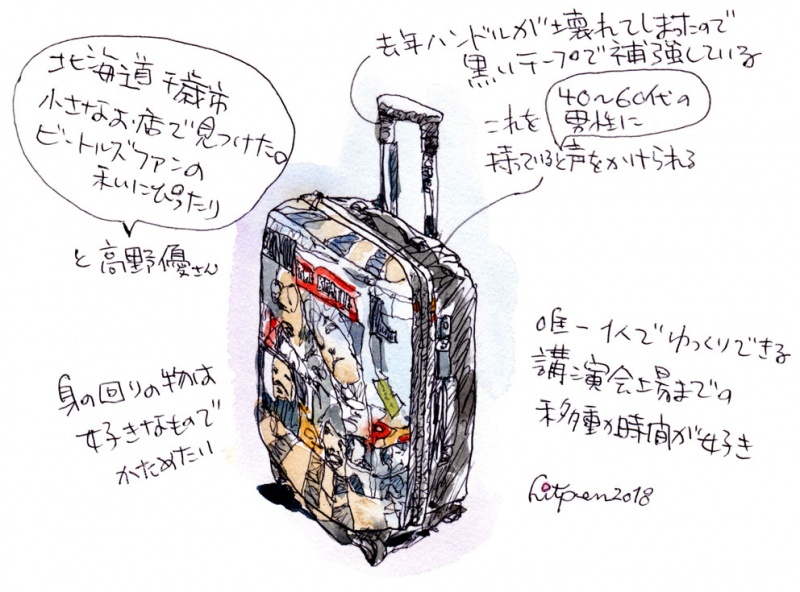 北海道千歳市
小さなお店で見つけたの
ビートルズファンの
私にぴったり
と高野優さん
去年ハンドルが壊れてしまったので
黒いテープで補強している
これを
40〜60代の
男性に
持っていると声をかけられる
THE BEATLES
身の回りの物は
好きなもので
かためたい
唯一1人でゆっくりできる
講演会場までの
移動時間が好き
hitpen2018